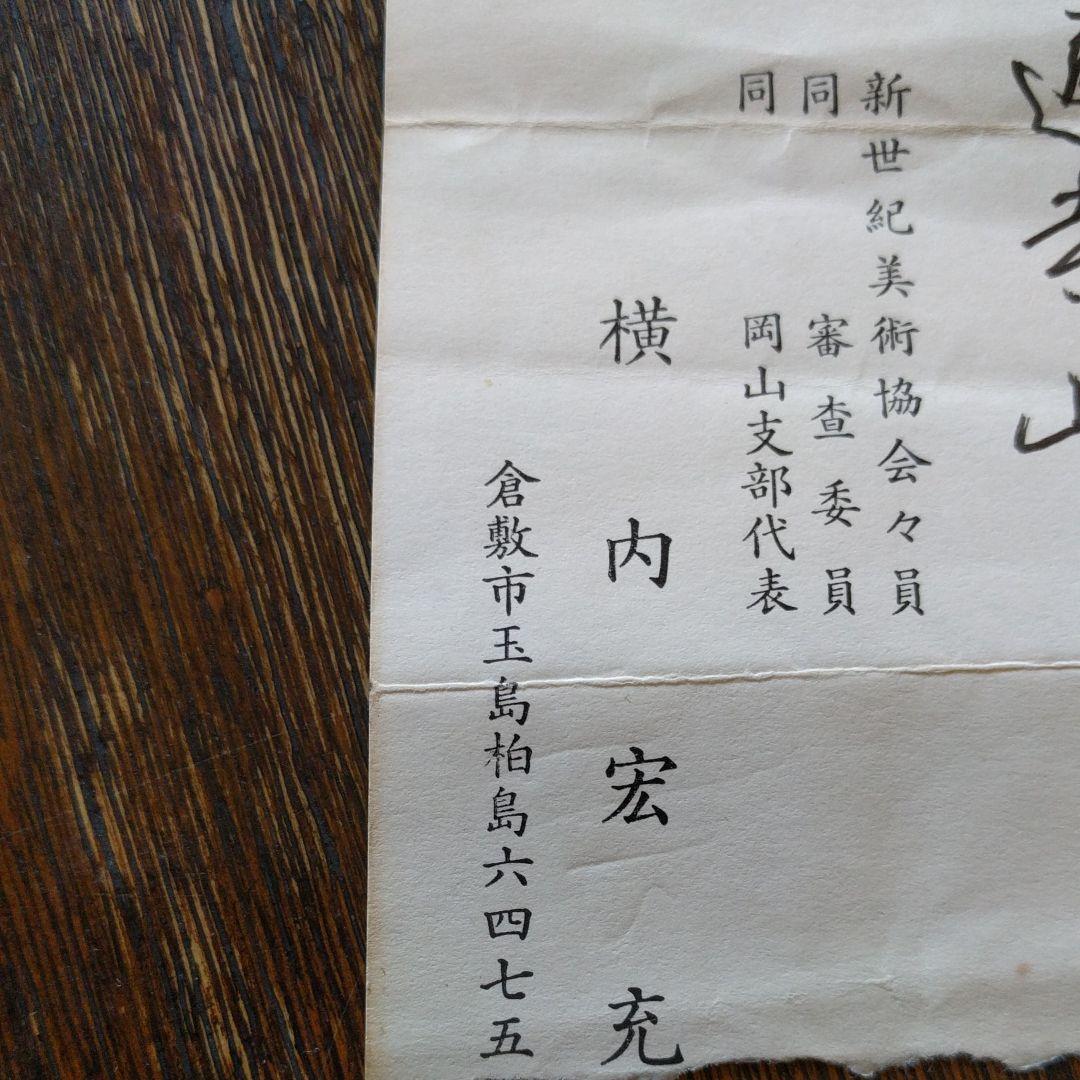 新世紀美術協会々員
同 審査委員
同 岡山支部代表
横内宏充
倉敷市玉島柏島六四七五